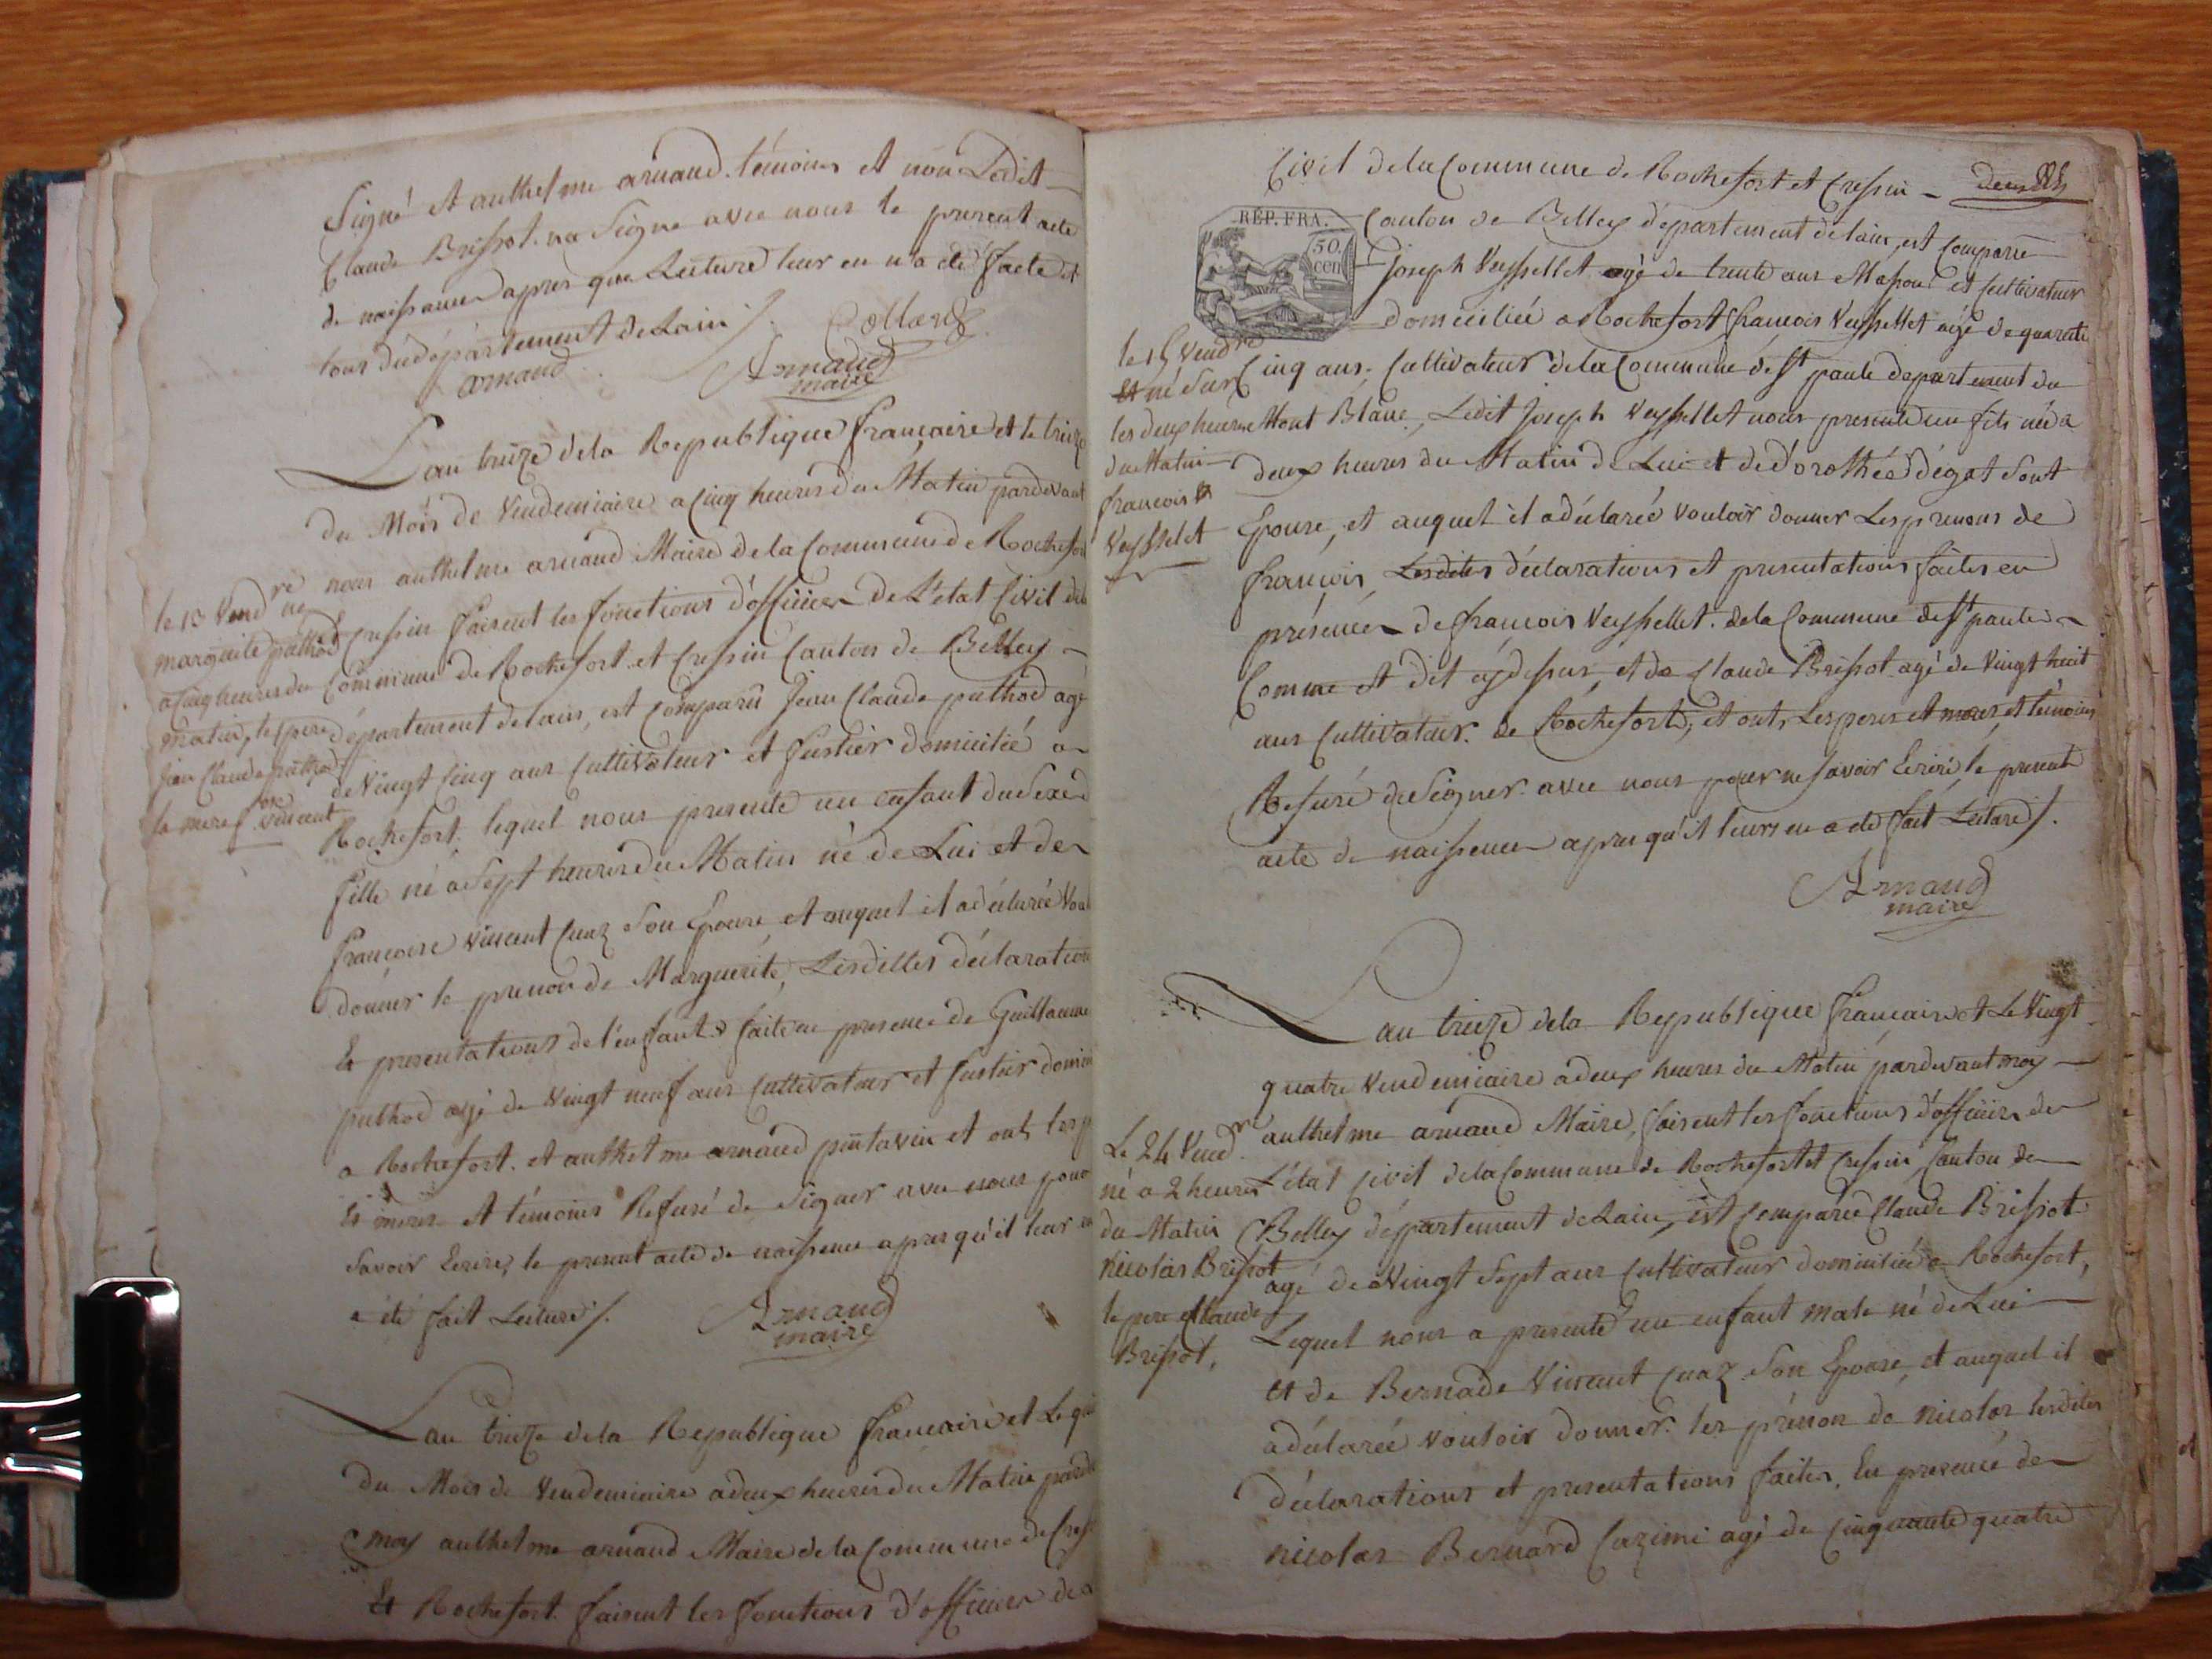 Signé et anthelme arnaud. témoins et non Ledit
Claude Brissot. na Signe avec nous le present acte
de naissance apres que Lecture leur en n'a été faite et
tous du département de Lain /.
arnaud
Collard
Arnaud
maire
Lan treize de la Republique francaise et le treize
du Mois de Vendemiaire a Cinq heures du Matin pardevant
nous anthelme arnaud Maire de la Commune de Rochefort
Cressin faisent les fonctions d'officier de L'etat Civil de la
Commune de Rochefort et Cressin Canton de Belley
département de lain, est Comparu Jean Claude puthod agé
de Vingt Cinq ans Cultivateur et fustier domicilié a
Rochefort. lequel nous presente un enfant du Sexe
fille né a Sept heures du Matin né de Lui et de
francoise vincent Cuaz Son Epouse et auquel il a déclarée Voul
donner le prenon de Marguerite, Lesdittes déclarations
Et presentations de l'enfant faite en presence de Guillaume
puthod agé de Vingt neuf ans Cultivateur et fustier domici
a Rochefort. et anthelme arnaud pintavin et ont, les p
Et meres et témoins Refusé de Signer avec nous pour
Savoir Ecrire, le present acte de naissence apres qu'il leur en
a été fait Lecture /.
Arnaud
maire
le 13 Vend re
ne
marguite puthod
a Cinq heures du
matin, le pere
Jean Claude puthod
la mere f.se vincent
Lan treize de la Republique francaise et Le qui
du Mois de Vendemiaire a deux heures du Matin parde
moy anthelme arnaud Maire de la Commune de Cres
Et Rochefort. faisent les fonctions d'officier de
Civil de la Commune de Rochefort et Cressin
RÉP. FRA.
50.
cen
Canton de Belley département de lain, est Comparu
Joseph Veyssellet agé de trente ans Masson et Cultivateur
domiciliée a Rochefort francois Veyssellet agé de quarente
Cinq ans. Cultivateur de la Commune de St paule departement du
Mont Blanc, Ledit Joseph Veyssellet nous presente un fils née a
deux heures du Matin de Lui et de dorothée dégat Sont
Epouse, et auquel il a déclarée vouloir donner Les prenons de
francois, Lesdites déclarations et presentations faites en
présence de francois Veyssellet. de la Commune de St paule
Comme et dit cy dessus, et de Claude Brissot agé de Vingt huit
ans Cultivateur. de Rochefort, et ont, Les peres et meres et témoins
Refusé de Signer avec nous pour ne Savoir Ecrire le present
acte de naissence apres qu'il leurs en a été fait Lecture /.
Arnaud
maire
le 15 vendre
et né Sur
les deux heures
du Matin
francois
Veysselet
Lan treize de la Republique francaise et Le Vingt
quatre Vendemiaire a deux heures du Matin pardevant moy
anthelme arnaud Maire, faisent les fonctions d'officier de
L'état Civil de la Commune de Rochefort et Cressin Canton de
Belley département de Lain, est Comparée Claude Brissot
agé de Vingt Sept ans Cultivateur domiciliée a Rochefort,
Lequel nous a presenté un enfant male né de Lui
et de Bernade Vincent Cuaz Son Epouse, et auquel il
a déclarée vouloir donner. les prénon de nicolas lesdites
déclarations et presentations faites, En presence de
nicolas Bernard Cazimi agé de Cinquante quatre
Le 24 Vendre
né a 2 heures
du Matin
nicolas Brissot
le pere Claude
Brissot,